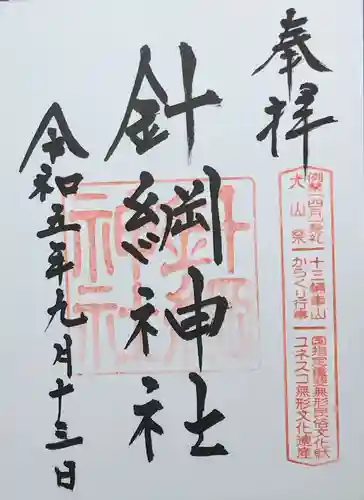 奉拝
例祭(四月)第一土・日
犬山祭
十三輌車山
からくり行事
国指定重要無形民俗文化財
ユネスコ無形文化遺産
針綱神社
針綱神社
令和五年九月十三日